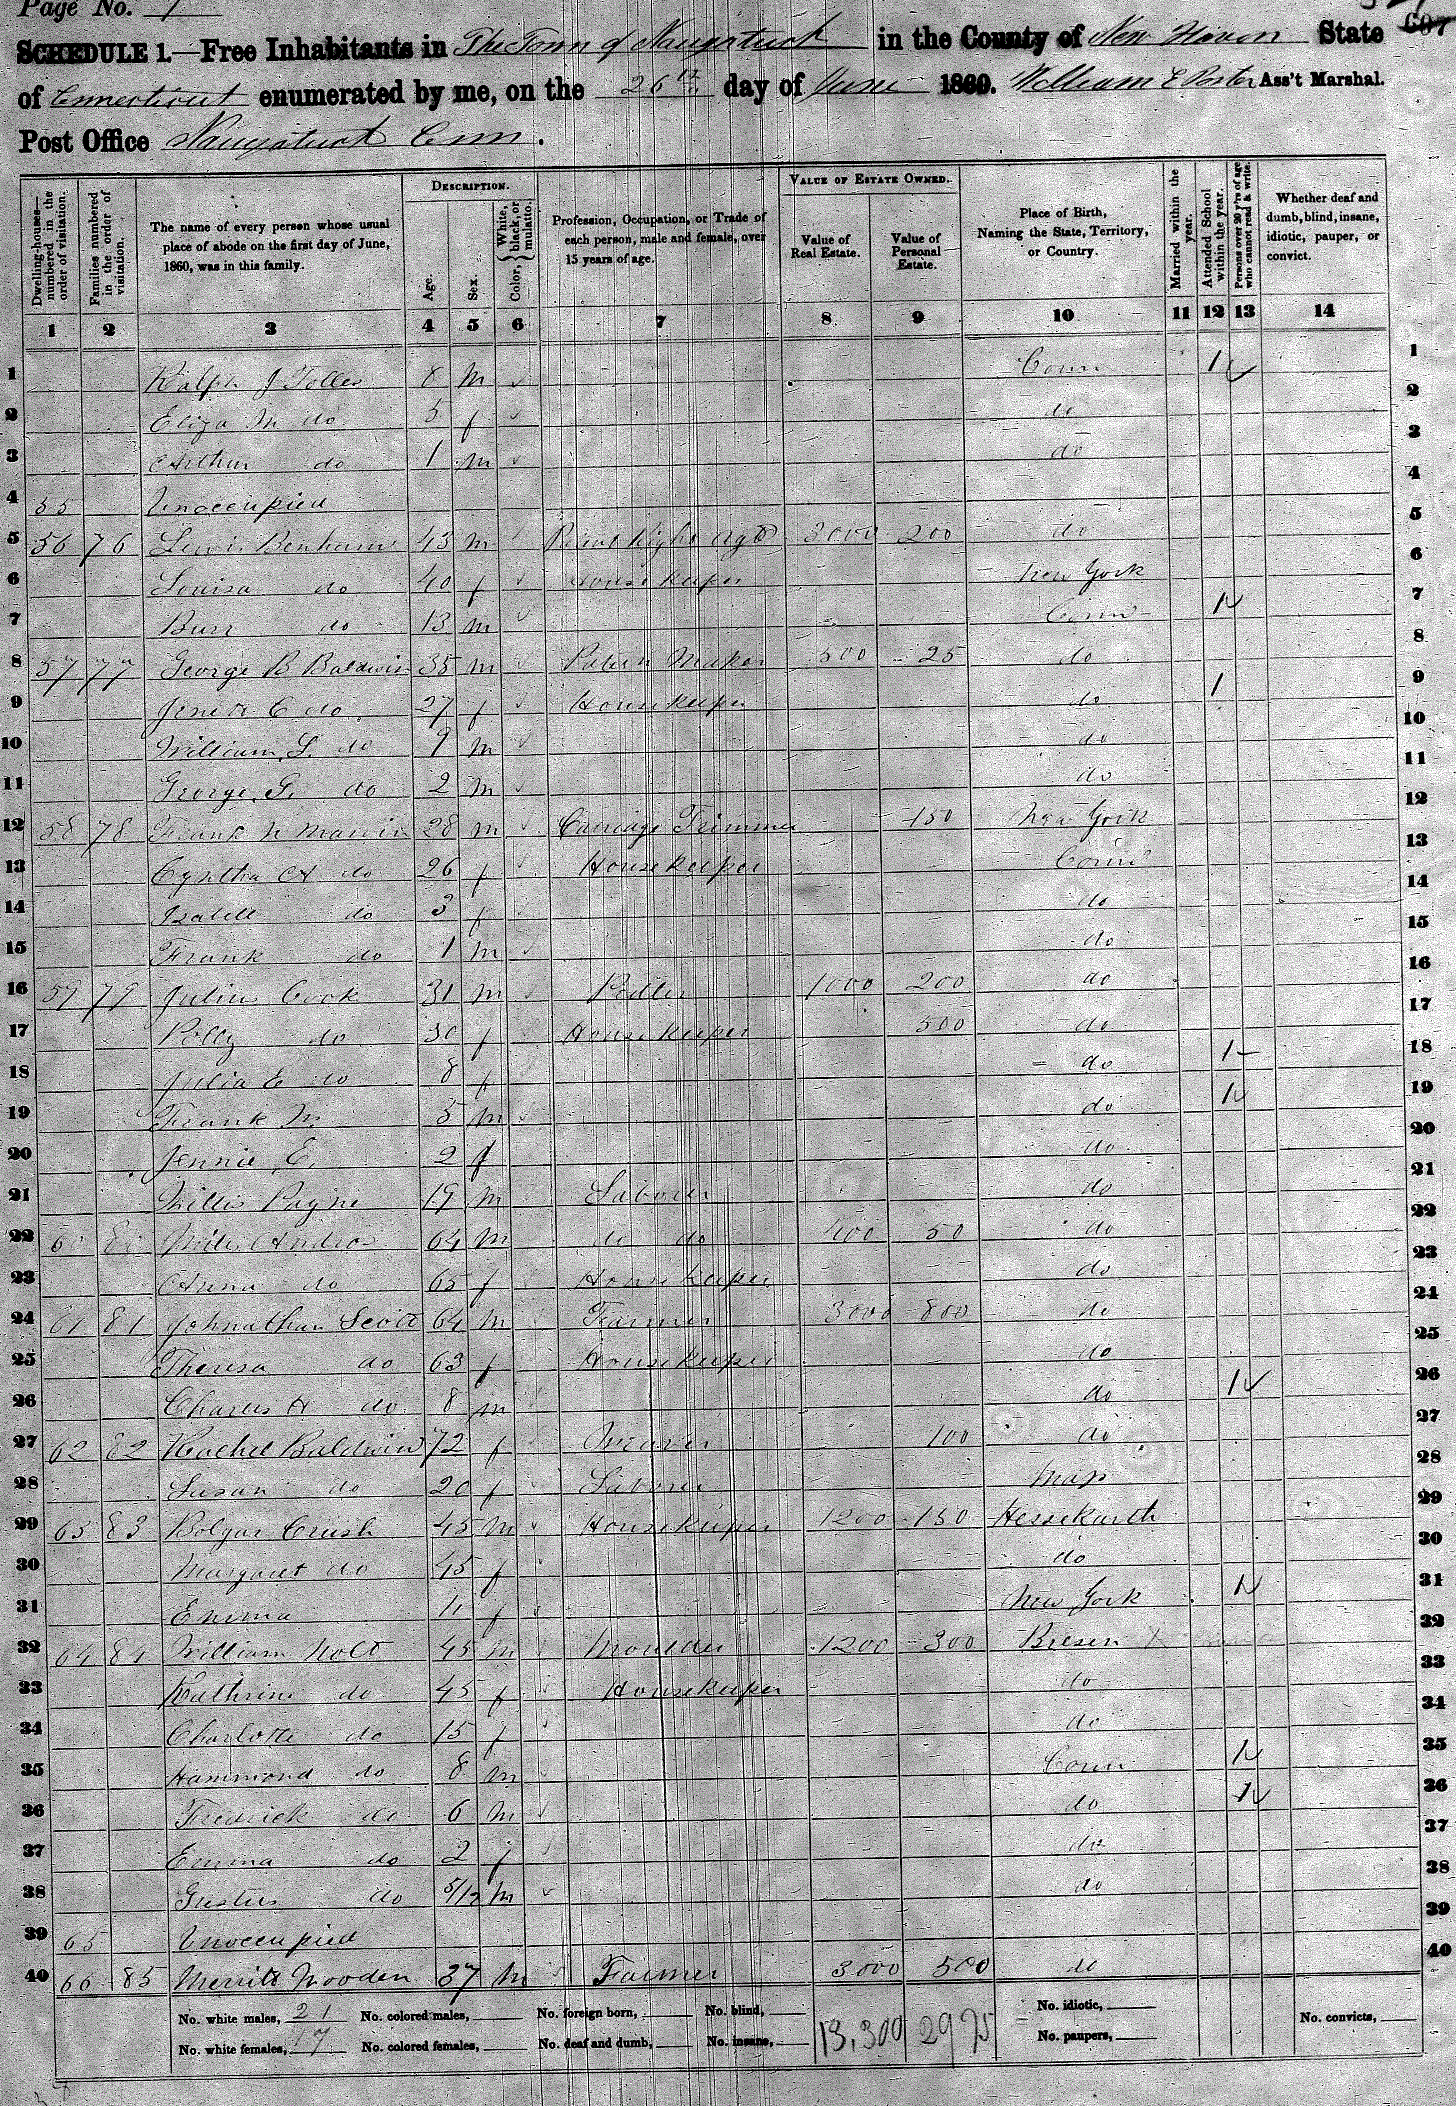 Page No. 7
SCHEDULE 1.—Free Inhabitants in The Town of Naugatuck in the County of New Haven State
of Connecticut enumerated by me, on the 26th day of June 1860. William E Porter Ass't Marshal.
Post Office Naugatuck Conn.
DESCRIPTION. VALUE OF ESTATE OWNED.
Dwelling-houses—numbered in the order of visitation. Families numbered in the order of visitation. The name of every person whose usual place of abode on the first day of June, 1860, was in this family. Age. Sex. Color, White, black, or mulatto. Profession, Occupation, or Trade of each person, male and female, over 15 years of age. Value of Real Estate. Value of Personal Estate. Place of Birth, Naming the State, Territory, or Country. Married within the year. Attended School within the year. Persons over 20 y'rs of age who cannot read & write. Whether deaf and dumb, blind, insane, idiotic, pauper, or convict.
1 2 3 4 5 6 7 8 9 10 11 12 13 14
1 Ralph J Tolles 8 m Conn 1 1
2 Eliza M do 5 f do 2
3 Arthur do 1 m do 3
4 55 Unoccupied 4
5 56 76 Lewis Benham 43 m 3000 200 do 5
6 Louisa do 40 f Housekeeper New York 6
7 Burr do 13 m Conn 1 7
8 57 77 George B Baldwin 35 m Patern Maker 500 25 do 8
9 C do 27 f Housekeeper do 1 9
10 William S. do 7 m do 10
11 George G. do 2 m do 11
12 58 78 Frank N Marvin 28 m Carriage Trimmer 150 New York 12
13 Cynthia A do 26 f Housekeeper Conn 13
14 Isabell do 3 f do 14
15 Frank do 1 m do 15
16 59 79 Julius Cook 31 m Pedler 1000 200 do 16
17 Polly do 30 f Housekeeper 500 do 17
18 Julia E do 8 f do 1 18
19 Frank M. 5 m do 1 19
20 Jennie E. 2 f do 20
21 Willis Payne 19 m Labourer do 21
22 60 80 Andrew 64 m do do 400 50 do 22
23 Anna do 65 f Housekeeper do 23
24 61 81 Johnathan Scott 64 m Farmer 3000 800 do 24
25 Theresa do 63 f Housekeeper do 25
26 Charles H do 8 m do 1 26
27 62 82 Rachel Baldwin 72 f Weaver 100 do 27
28 Susan do 20 f Laborer Mass 28
29 63 83 Bolgar Crush 45 m Housekeeper 1200 150 29
30 Margaret do 45 f do 30
31 Emma 11 f New York 1 31
32 64 84 William Nolt 45 m Moulder 1200 300 32
33 Kathrine do 45 f Housekeeper do 33
34 Charlotte do 15 f do 34
35 Hammond do 8 m Conn 1 35
36 Fredrick do 6 m do 1 36
37 Emma do 2 f do 37
38 Gustus do 5/12 m do 38
39 65 Unoccupied 39
40 66 85 Merritt Wooden 37 m Farmer 3000 500 do 40
No. white males, 21 No. colored males, No. foreign born, No. blind, No. idiotic,
No. white females, 17 No. colored females, No. deaf and dumb, No. insane, 13,300 2975 No. paupers, No. convicts,